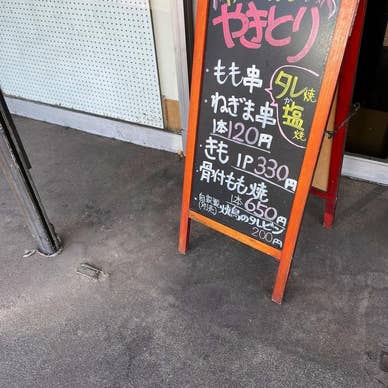 やきとり
・もも串
・ねぎま串
1本120円
タレ焼
か
塩焼
・きも 1P 330円
・骨付もも焼
1本650円
自家製
焼鳥のタレビン
200円